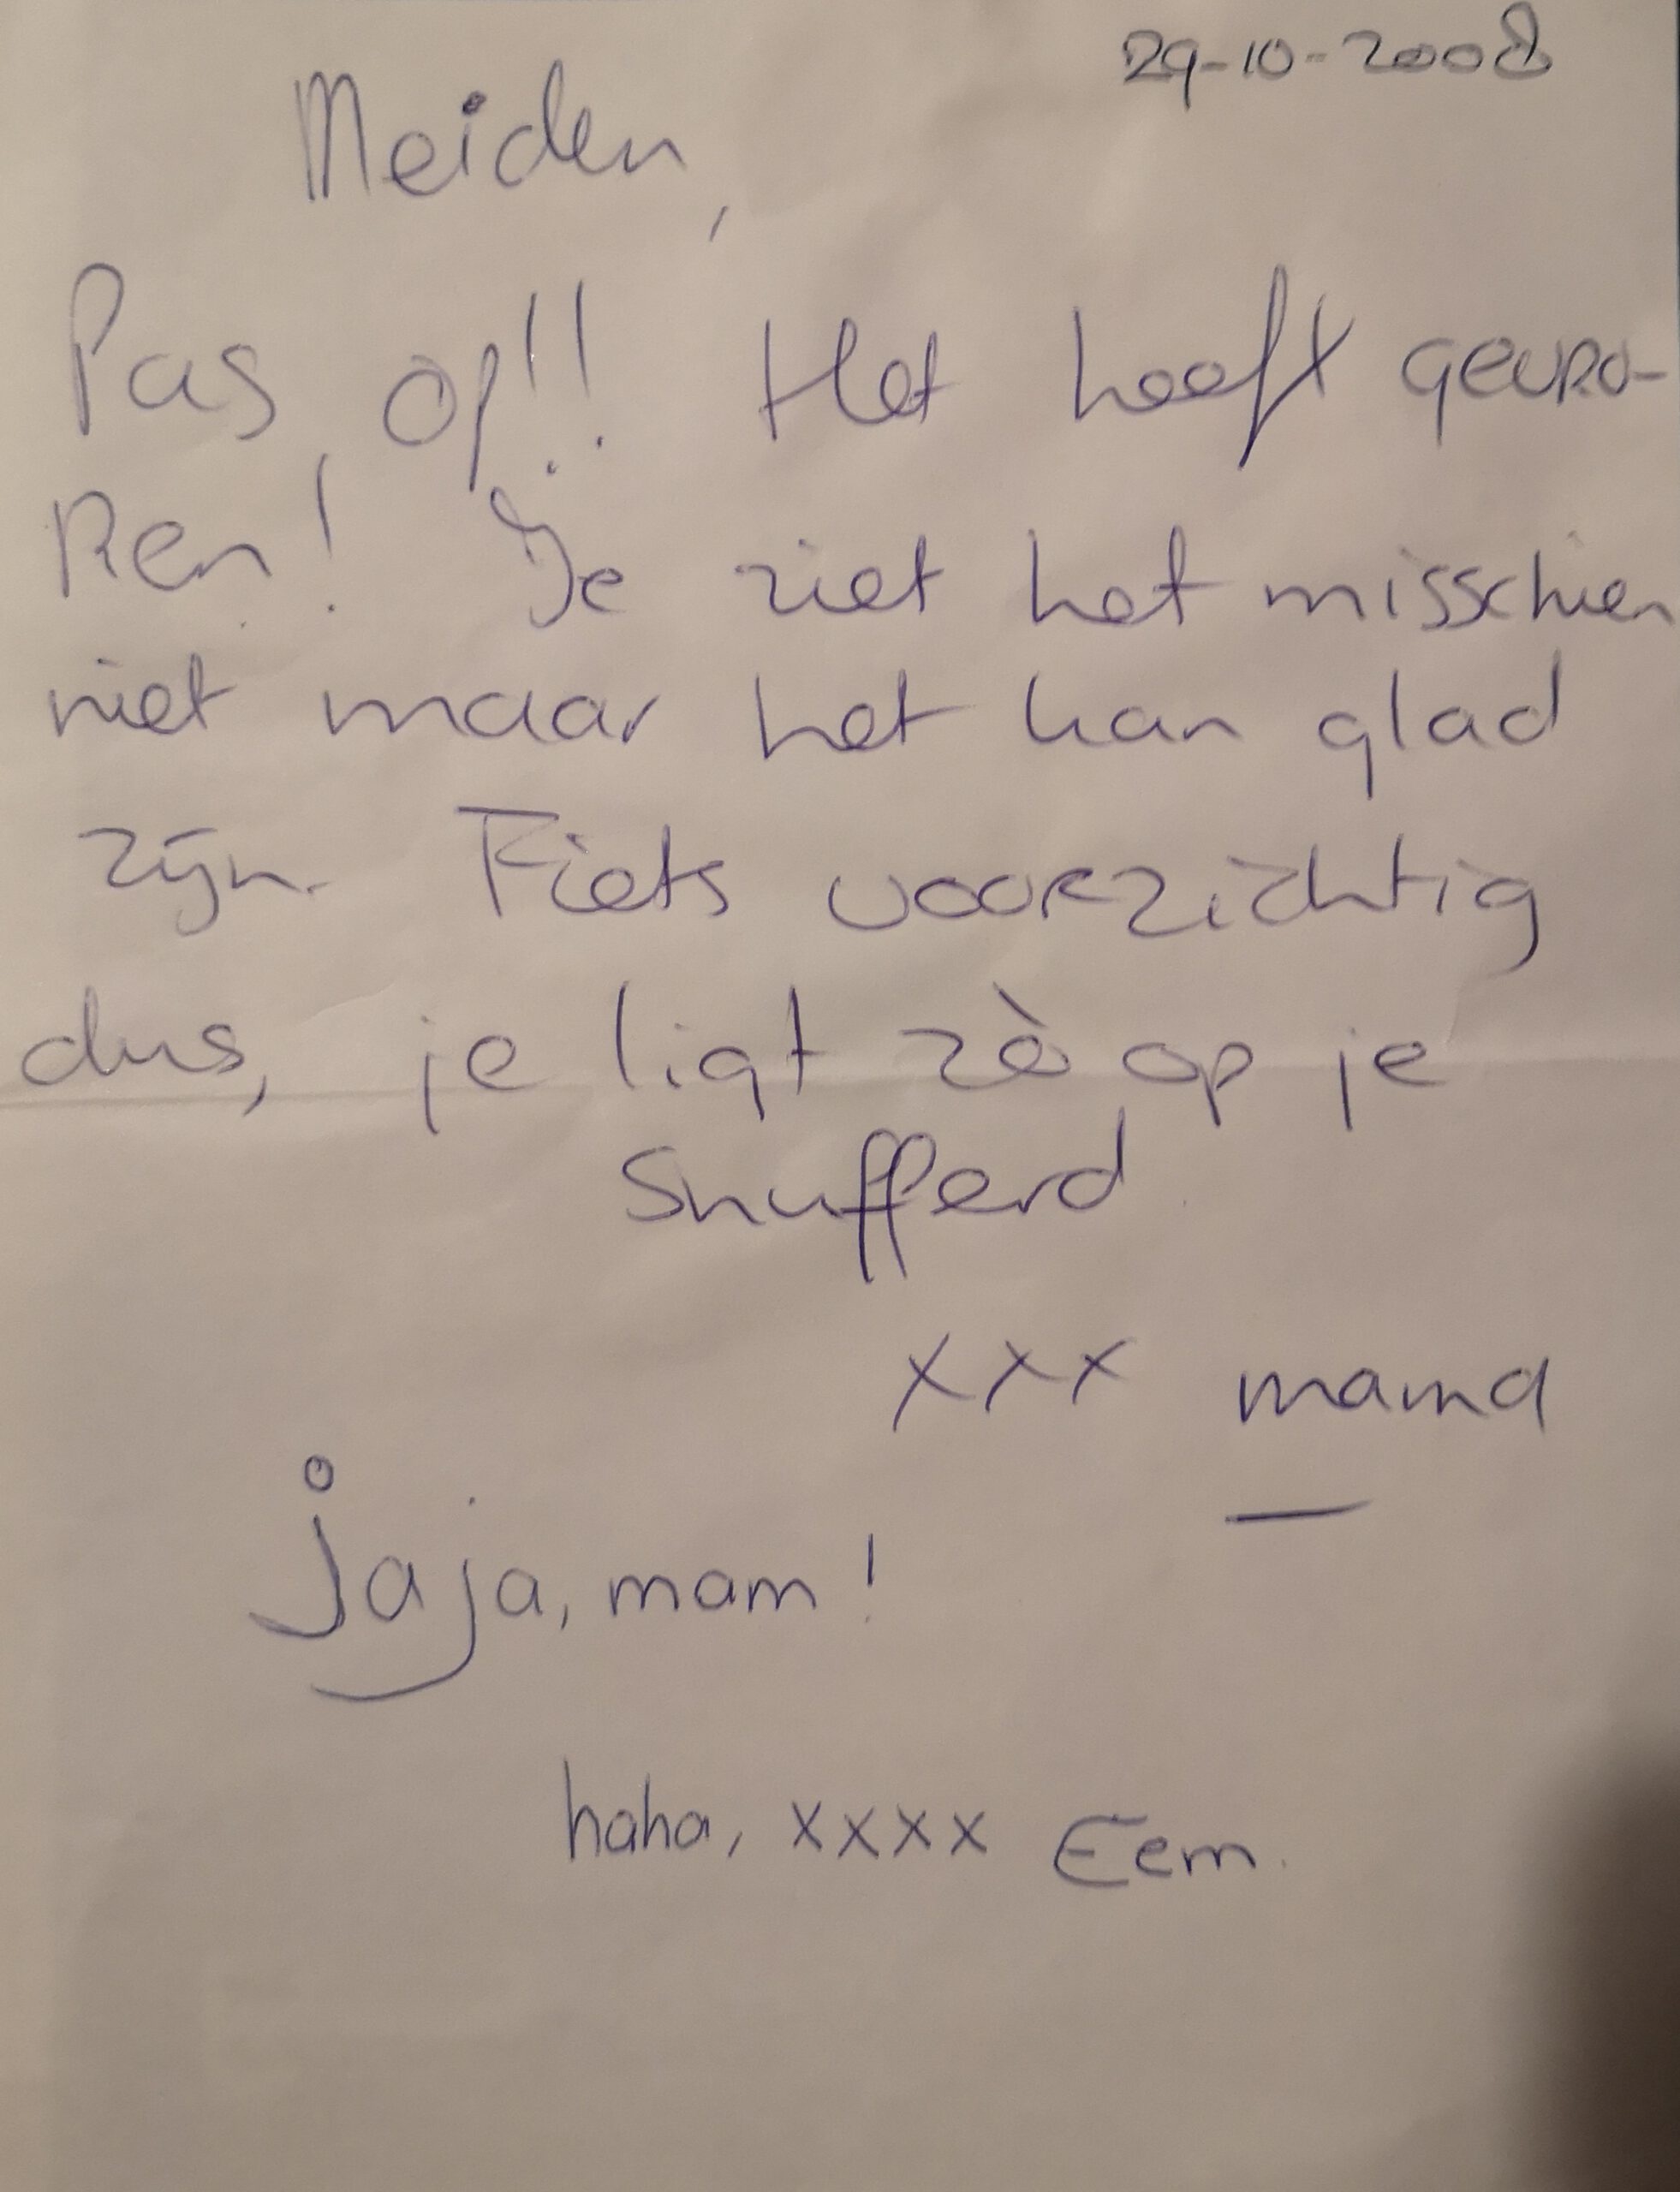 29-10-2008
Meiden,
Pas op!! Het heeft gevro-
ren! Je ziet het misschien
niet maar het kan glad
zijn. Fiets voorzichtig
dus, je ligt zò op je
Snufferd.
xxx mama
jaja, mam!
haha, xxxx Eem.